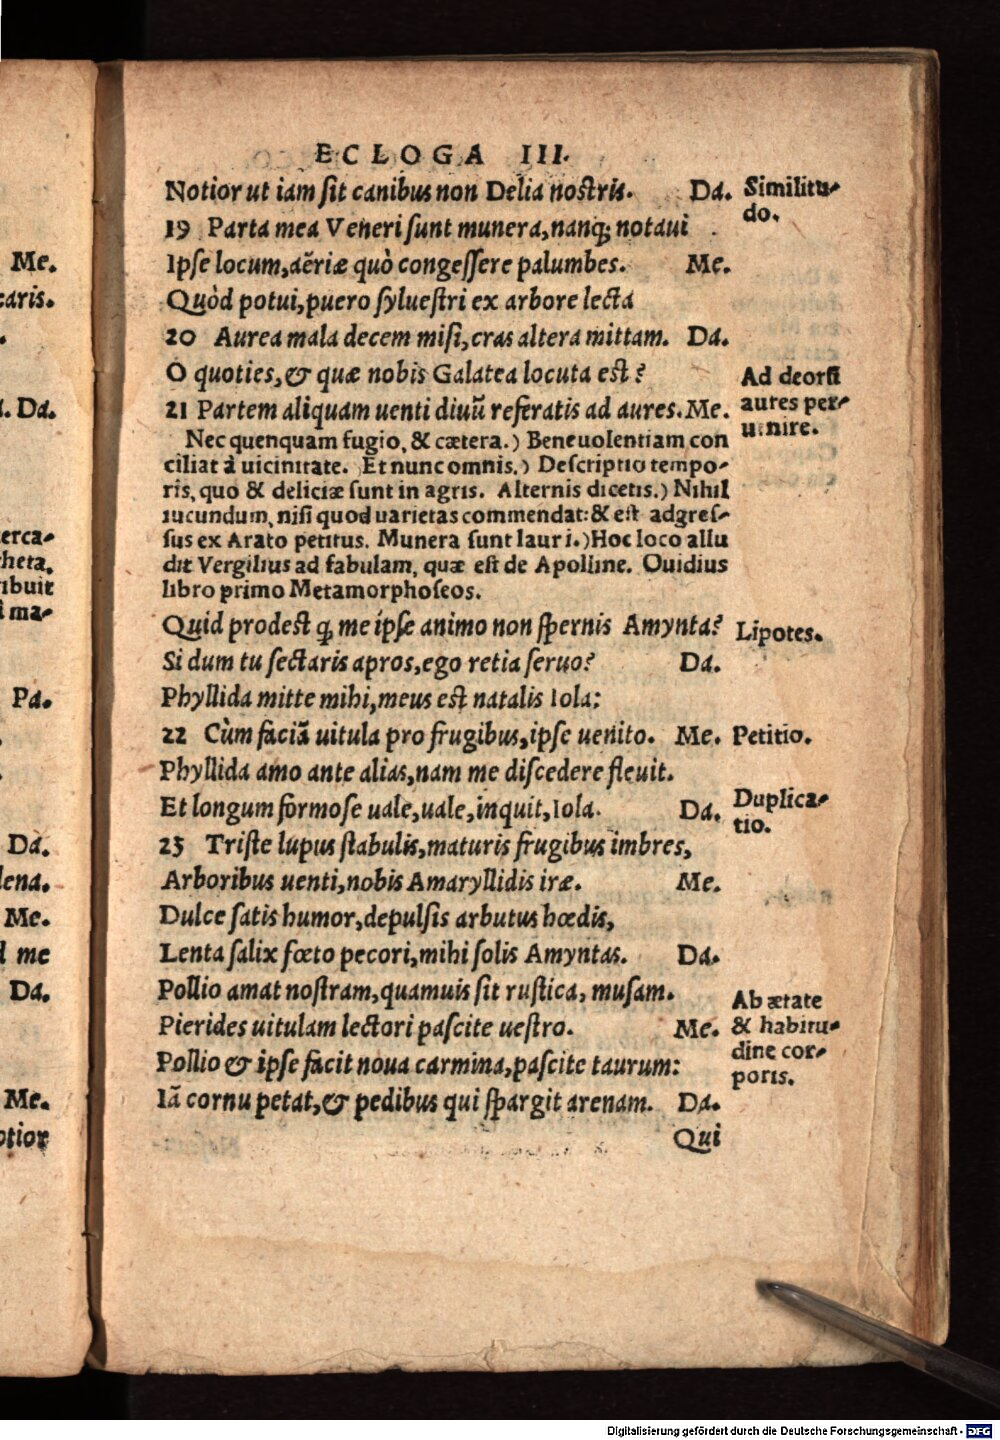 Me.
caris.
Da.
erca-
heta,
ribuit
ma-
Pa.
Da.
lena.
Me.
d me
Da.
Me.
otior
ECLOGA III.
Notior ut iam sit canibus non Delia nostris. Da.
Similitu-
do.
19 Parta mea Veneri sunt munera, nanq; notaui
Ipse locum, aëriæ quò congessere palumbes. Me.
Quòd potui, puero syluestri ex arbore lecta
20 Aurea mala decem misi, cras altera mittam. Da.
O quoties, & quæ nobis Galatea locuta est?
Ad deorũ
aures per-
uenire.
21 Partem aliquam uenti diuũ referatis ad aures. Me.
Nec quenquam fugio, & cætera.) Beneuolentiam con
ciliat à uicinitate. Et nunc omnis.) Descriptio tempo-
ris, quo & deliciæ sunt in agris. Alternis dicetis.) Nihil
iucundum, nisi quod uarietas commendat: & est adgres-
sus ex Arato petitus. Munera sunt lauri.) Hoc loco allu
dit Vergilius ad fabulam, quæ est de Apolline. Ouidius
libro primo Metamorphoseos.
Quid prodest q̃ me ipse animo non spernis Amynta?
Lipotes.
Si dum tu sectaris apros, ego retia seruo? Da.
Phyllida mitte mihi, meus est natalis Iola:
22 Cùm faciã uitula pro frugibus, ipse uenito. Me.
Petitio.
Phyllida amo ante alias, nam me discedere fleuit.
Et longum formose uale, uale, inquit, Iola. Da.
Duplica-
tio.
23 Triste lupus stabulis, maturis frugibus imbres,
Arboribus uenti, nobis Amaryllidis iræ. Me.
Dulce satis humor, depulsis arbutus hœdis,
Lenta salix fœto pecori, mihi solis Amyntas. Da.
Pollio amat nostram, quamuis sit rustica, musam.
Pierides uitulam lectori pascite uestro. Me.
Ab ætate
& habitu-
dine cor-
poris.
Pollio & ipse facit noua carmina, pascite taurum:
Iã cornu petat, & pedibus qui spargit arenam. Da.
Qui
Digitalisierung gefördert durch die Deutsche Forschungsgemeinschaft - DFG